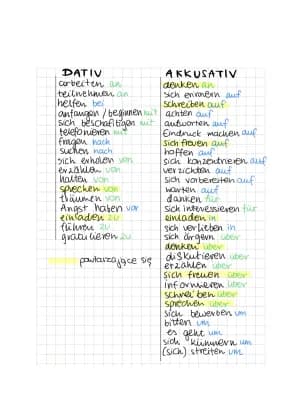 DATIV
arbeiten an
teilnehmen an
helfen bei
anfangen / beginnen mit
sich beschäftigen mit
telefonieren mit
fragen nach
suchen nach
sich erholen von
erzählen von
halten von
sprechen von
träumen von
Angst haben vor
einladen zu
führen zu
gratulieren zu
powtarzające się
AKKUSATIV
denken an
sich erinnern auf
schreiben auf
achten auf
antworten auf
Eindruck machen auf
sich freuen auf
hoffen auf
sich konzentrieren auf
verzichten auf
sich vorbereiten auf
warten auf
danken für
sich interessieren für
einladen in
sich verlieben in
sich ärgern über
denken über
diskutieren über
erzählen über
sich freuen über
informieren über
schreiben über
sprechen über
sich bewerben um
bitten um
es geht um
sich kümmern um
(sich) streiten um